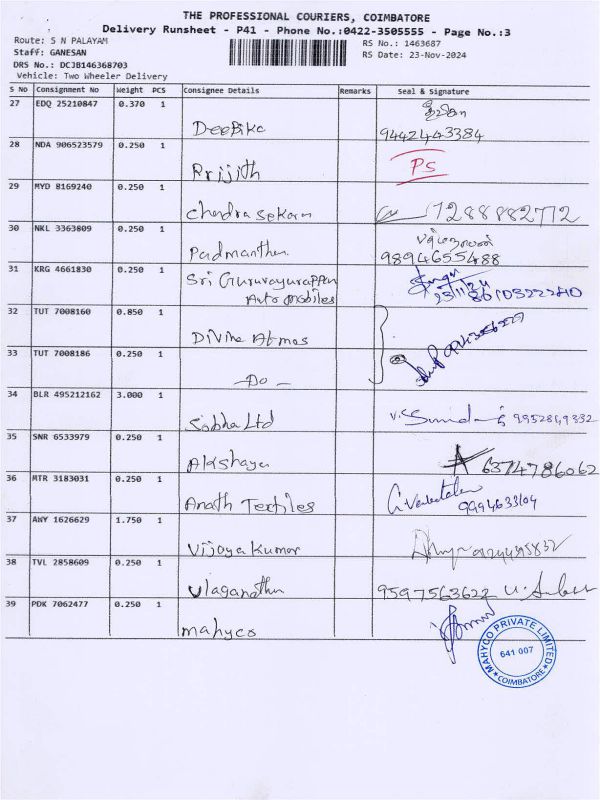 THE PROFESSIONAL COURIERS, COIMBATORE
Delivery Runsheet - P41 - Phone No.:0422-3505555 - Page No.:3
Route: S N PALAYAM
RS No.: 1463687
Staff: GANESAN
RS Date: 23-Nov-2024
DRS No.: DCJB146368703
Vehicle: Two Wheeler Delivery
S No Consignment No Weight PCS Consignee Details Remarks Seal & Signature
27 EDQ 25210847 0.370 1
Deepika 9442443384
28 NDA 906523579 0.250 1
Prijith PS
29 MYD 8169240 0.250 1
Chandrasekaran 7288882772
30 NKL 3363809 0.250 1
Padmanthan 9894655488
31 KRG 4661830 0.250 1
Sri Gururvayurappan
Automobiles 23/11/24
32 TUT 7008160 0.850 1
Divine Atmos
33 TUT 7008186 0.250 1
- Do -
34 BLR 495212162 3.000 1
Sobha Ltd 9952849332
35 SNR 6533979 0.250 1
Akshaya 6374786062
36 MTR 3183031 0.250 1
Anath Textiles 9994633104
37 AWY 1626629 1.750 1
Vijoya Kumar
38 TVL 2858609 0.250 1
Ulaganathan 9597563622
39 PDK 7062477 0.250 1
mahyco
MAHYCO PRIVATE LIMITED
641 007
COIMBATORE